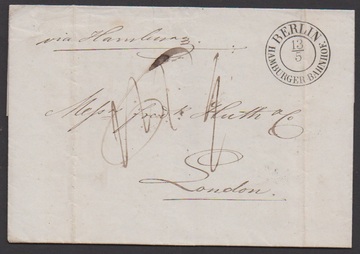 via Hamburg.
BERLIN
13/5
HAMBURGER-BAHNHOF
Mess. Fredk. Huth & Co
London.